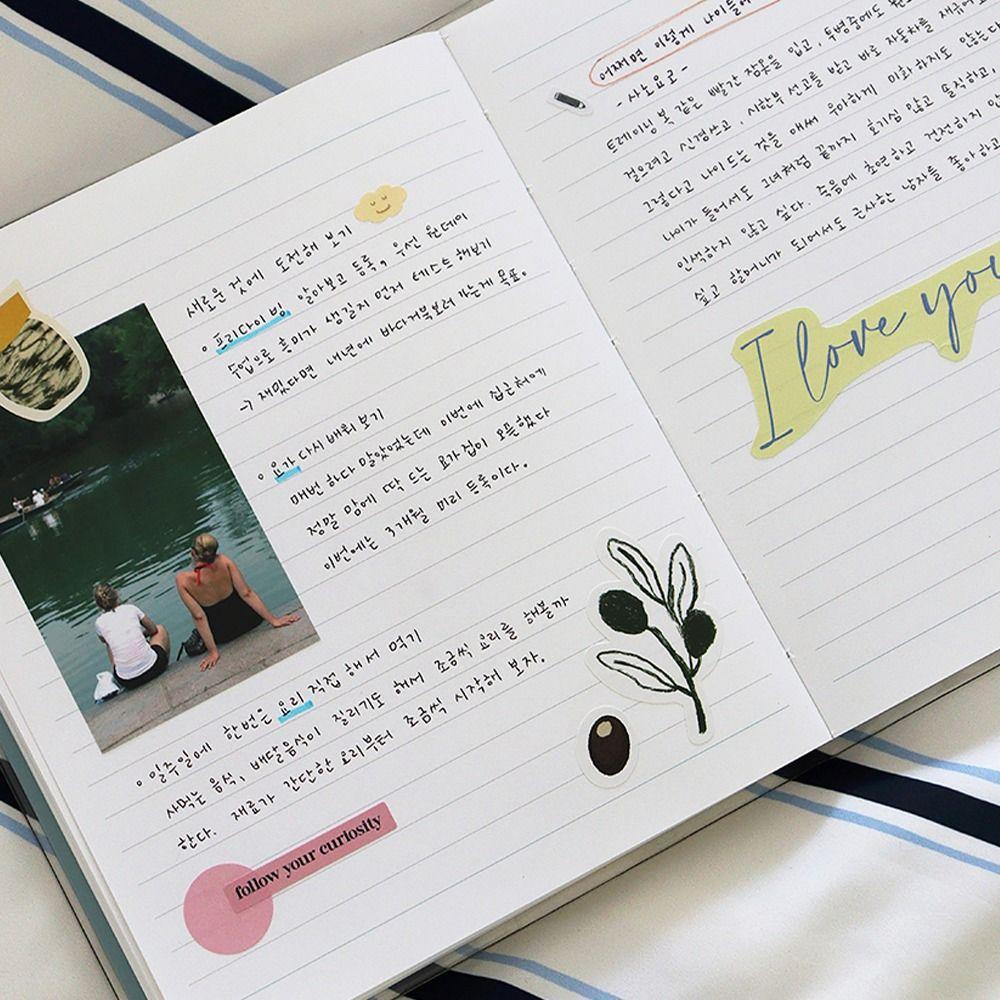 새로운 것에 도전해 보기
◦ 프리다이빙 알아보고 등록, 우선 원데이
수업으로 흥미가 생길지 먼저 테스트해보기
→ 재밌다면 내년에 바다거북보러 가는게 목표.
◦ 요가 다시 배워 보기
매번 하다 말았었는데 이번에 집근처에
정말 맘에 딱 드는 요가집이 오픈했다
이번에는 3개월 미리 등록이다.
◦ 일주일에 한번은 요리 직접 해서 먹기
사먹는 음식, 배달음식이 질리기도 해서 조금씩 요리를 해볼까
한다. 재료가 간단한 요리부터 조금씩 시작해 보자.
follow your curiosity
어쩌면 이렇게 나이들어
- 사노요코 -
트레이닝 복 같은 빨간 잠옷을 입고, 투병중에도
걸으려고 신경쓰고, 시한부 선고를 받고 바로 자동차를
그렇다고 나이드는 것을 애써 우아하게 미화 하지도 않는다
나이가 들어서도 그녀처럼 끝까지 호기심 많고 솔직하고,
인색하지 않고 싶다. 죽음에 초연하고 건전하지
싶고 할머니가 되어서도 근사한 남자를 좋아하고
I love you